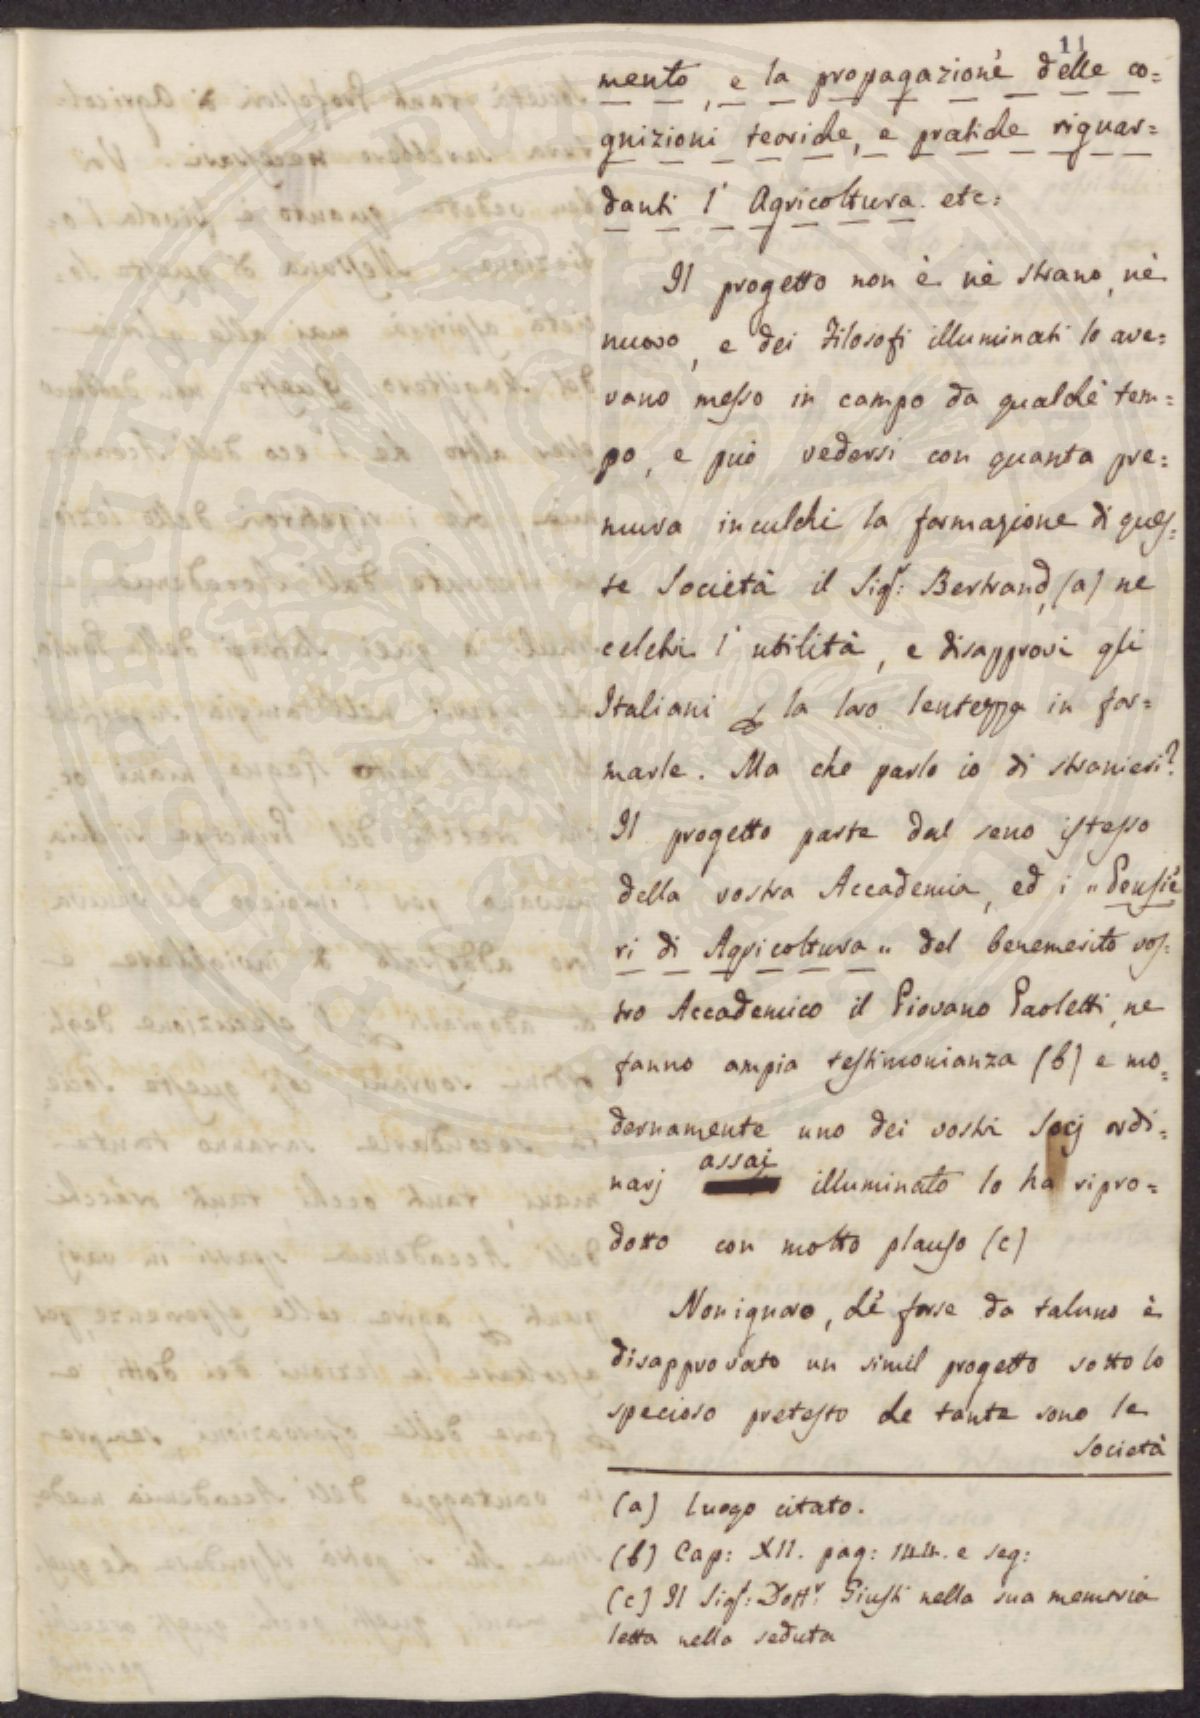 11
mento, e la propagazione delle co=
gnizioni teoriche, e pratiche riguar=
danti l' Agricoltura. etc:
Il progetto non è nè strano, nè
nuovo, e dei Filosofi illuminati lo ave=
vano messo in campo da qualche tem=
po, e può vedersi con quanta pre=
mura inculchi la formazione di ques=
te Società il Sigr: Bertrand, (a) ne
celebri l' utilità, e disapprovi gli
Italiani la loro lentezza in for=
marle. Ma che parlo io di stranieri?
Il progetto parte dal seno istesso
della vostra Accademia, ed i "Pensie
ri di Agricoltura" del benemerito vos=
tro Accademico il Piovano Paoletti, ne
fanno ampia testimonianza (b) e mo=
dernamente uno dei vostri Socj ordi=
narj assai illuminato lo ha ripro=
dotto con molto plauso (c)
Non ignoro, che forse da taluno è
disapprovato un simil progetto sotto lo
specioso pretesto che tante sono le
Società
(a) luogo citato.
(b) Cap: XII. pag: 144. e seg:
(c) Il Sigr: Dottr. Giusti nella sua memoria
letta nella seduta